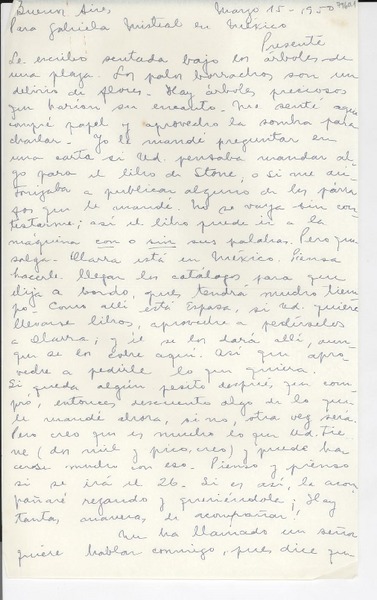 Buenos Aires Marzo 15 - 1950
Para Gabriela Mistral en México
Presente
Le escribo sentada bajo los árboles de
una plaza. Los palos borrachos son un
delirio de flores. Hay árboles preciosos
que harían su encanto. Me senté aquí
compré papel y aprovecho la sombra para
charlar. Yo le mandé preguntar en
una carta si Ud. pensaba mandar al-
go para el libro de Stone, o si me au-
torizaba a publicar alguno de los párra-
fos que le mandé. No se vaya sin con-
testarme; así el libro puede ir a la
máquina con o sin sus palabras. Pero que
salga. Ularra está en México. Piensa
hacerle llegar los catálogos para que
elija a bordo, pues tendrá mucho tiem-
po. Como allí está Espasa, si Ud. quiere
llevarse libros, aproveche a pedírselos
a Ularra; y él se los dará allí, aun-
que se los cobre aquí. Así que apro-
veche a pedirle lo que quiera.
Si queda algún pesito después que com-
pró, entonces descuento algo de lo que
le mandé ahora, si no, otra vez será.
Pero creo que es mucho lo que Ud. tie-
ne (dos mil y pico, creo) y puede ha-
cerse mucho con eso. Pienso y pienso
si se irá el 26. Si es así, la acom-
pañaré rezando y queriéndola; ¡Hay
tantas maneras de acompañar!
Me ha llamado un señor
quiere hablar conmigo, pues dice que